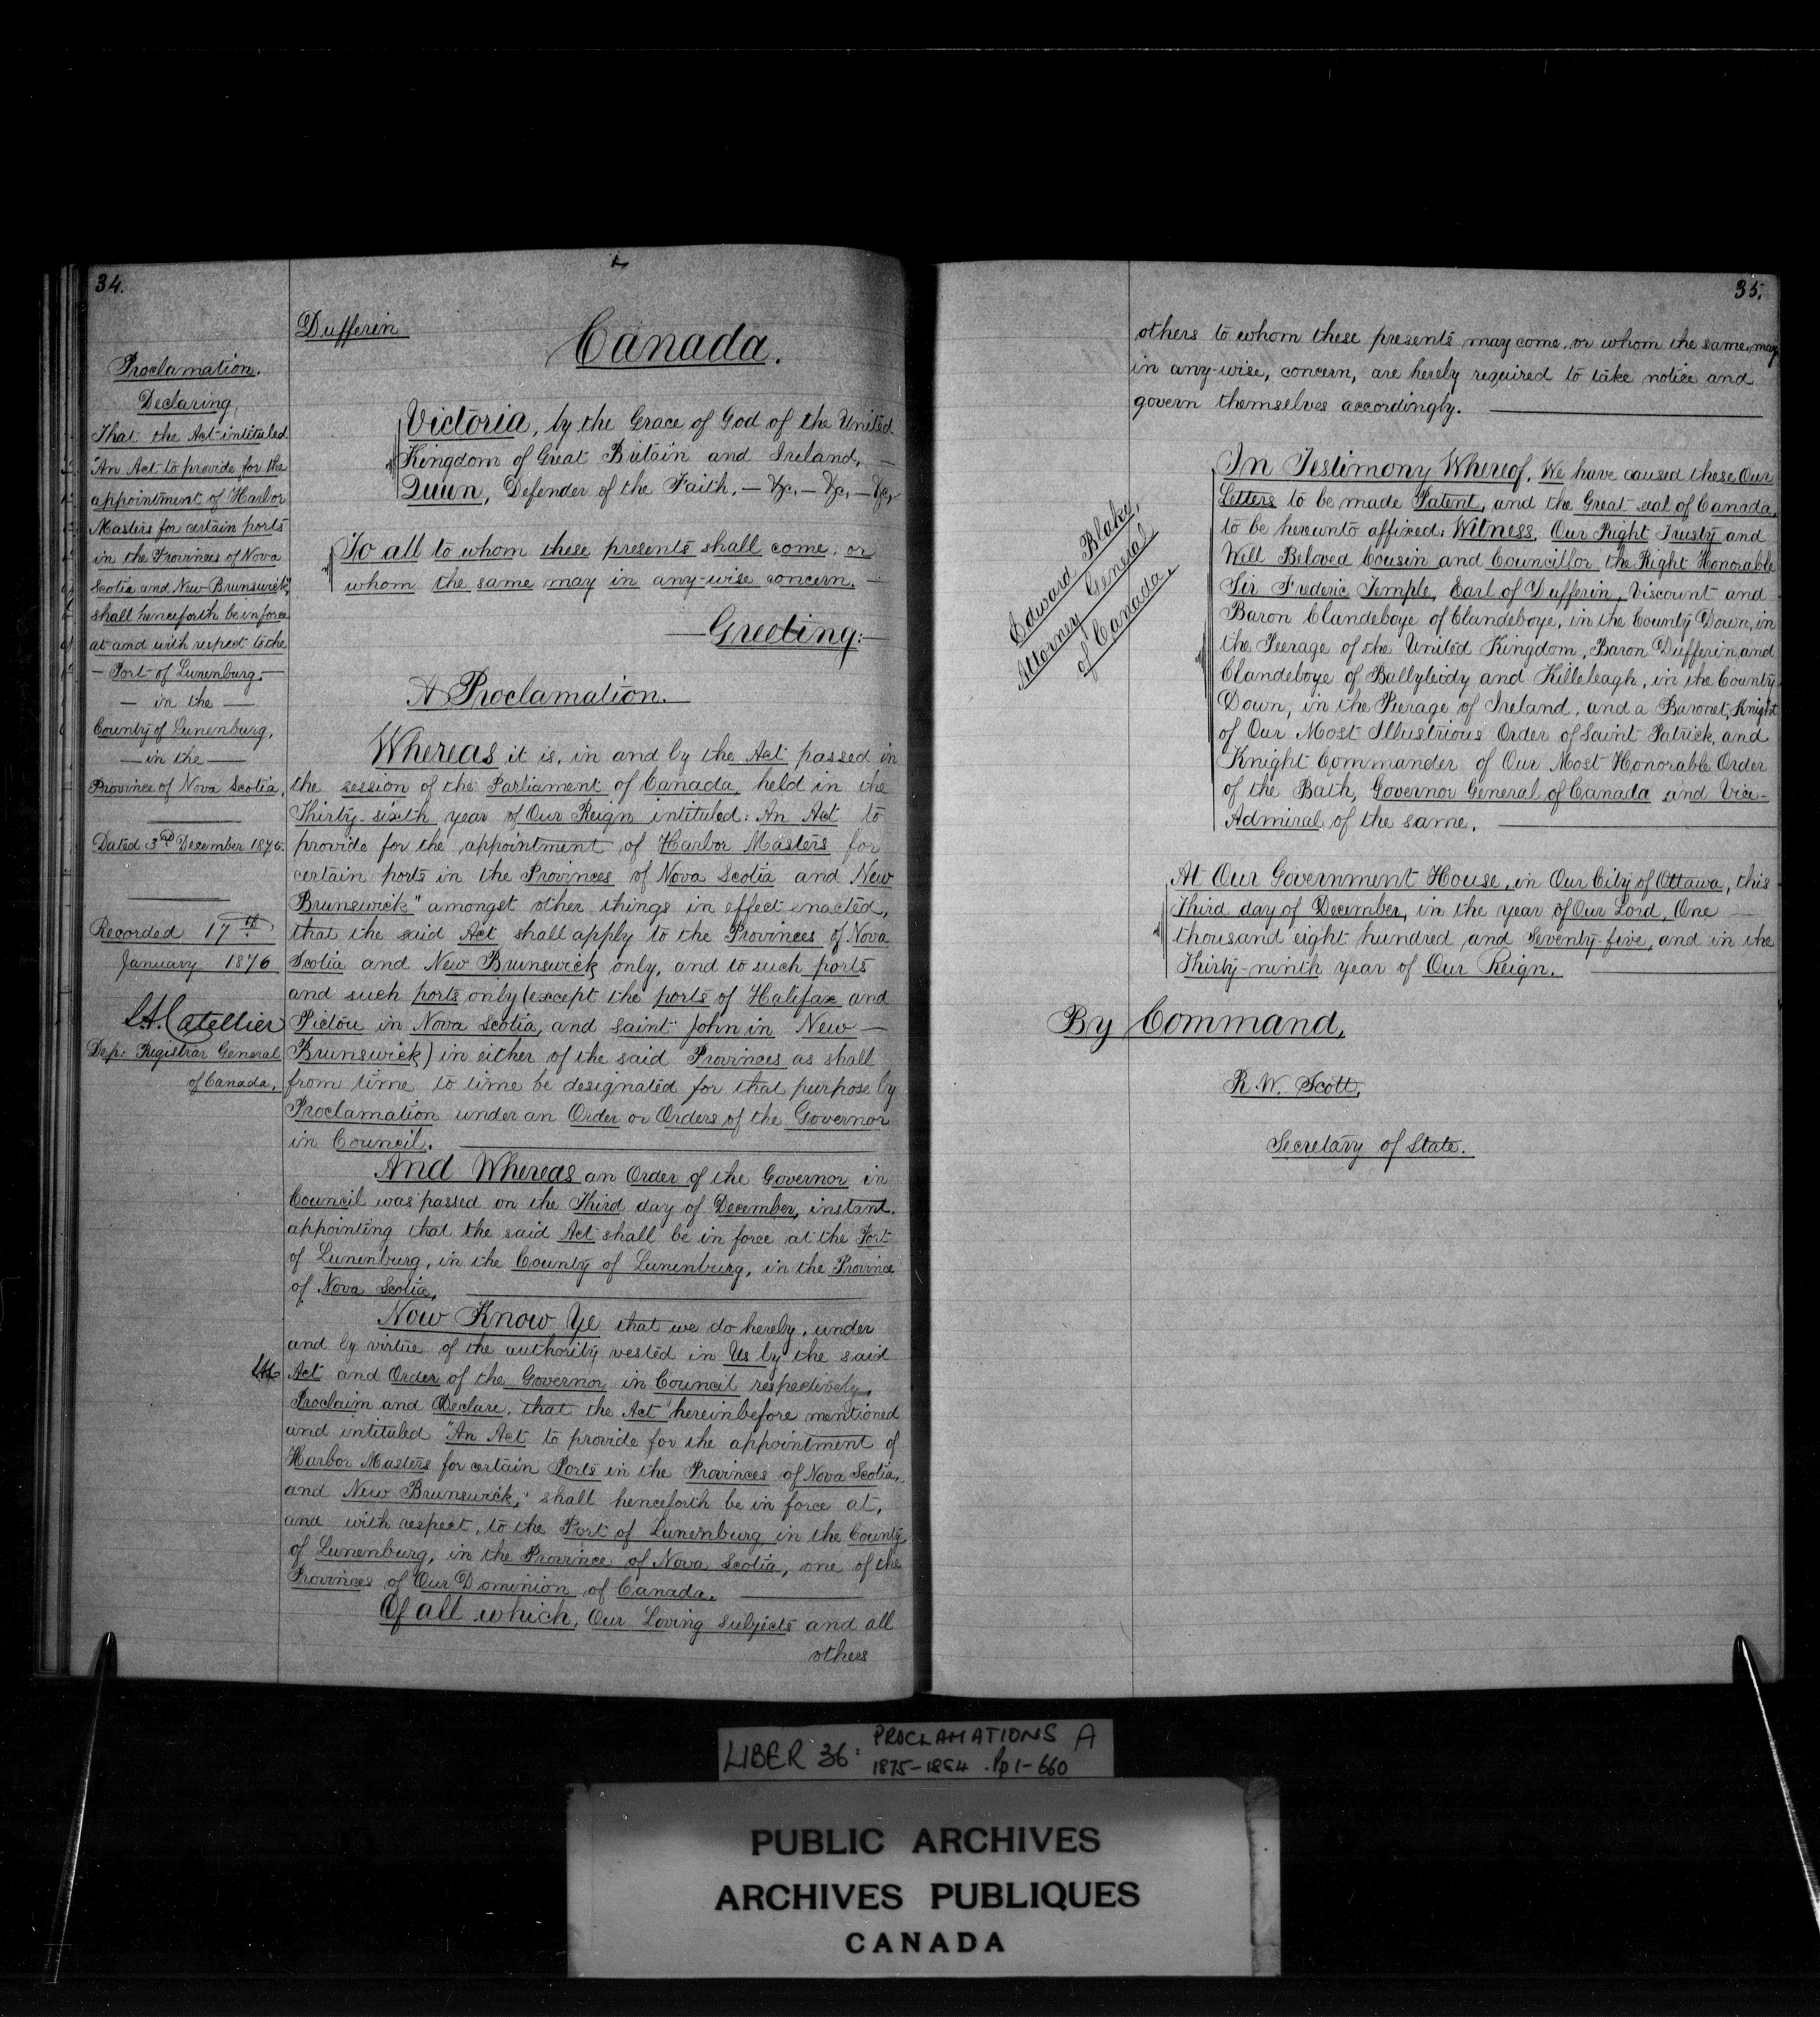 34.
Proclamation.
Declaring,
That the Act intituled
"An Act to provide for the
appointment of Harbor
Masters for certain ports
in the Provinces of Nova
Scotia and New Brunswick",
shall henceforth be in force
at and with respect to the
— Port of Lunenburg. —
— in the —
County of Lunenburg,
— in the —
Province of Nova Scotia,
Dated 3rd December 1875.
Recorded 17th
January 1876
L.A. Catellier
Dep: Registrar General
of Canada.
Dufferin
Canada.
Victoria, by the Grace of God of the United
Kingdom of Great Britain and Ireland, —
Queen, Defender of the Faith, — &c, — &c, — &c,
To all to whom these presents shall come, or
whom the same may in any-wise concern. —
— Greeting: —
A Proclamation.
Whereas it is, in and by the Act passed in
the session of the Parliament of Canada, held in the
Thirty-sixth year of Our Reign intituled: An Act to
provide for the appointment of Harbor Masters for
certain ports in the Provinces of Nova Scotia and New
Brunswick" amongst other things in effect enacted,
that the said Act shall apply to the Provinces of Nova
Scotia and New Brunswick only, and to such ports
and such ports only (except the ports of Halifax and
Pictou in Nova Scotia, and Saint John in New —
Brunswick) in either of the said Provinces as shall
from time to time be designated for that purpose by
Proclamation under an Order or Orders of the Governor
in Council.
And Whereas an Order of the Governor in
Council was passed on the Third day of December, instant,
appointing that the said Act shall be in force at the Port
of Lunenburg, in the County of Lunenburg, in the Province
of Nova Scotia,
Now Know Ye that we do hereby, under
and by virtue of the authority vested in Us by the said
Act and Order of the Governor in Council respectively,
Proclaim and Declare, that the Act hereinbefore mentioned
and intituled "An Act to provide for the appointment of
Harbor Masters for certain Ports in the Provinces of Nova Scotia,
and New Brunswick," shall henceforth be in force at,
and with respect, to the Port of Lunenburg, in the County
of Lunenburg, in the Province of Nova Scotia, one of the
Provinces of Our Dominion of Canada.
Of all which, Our Loving Subjects and all
others
35.
others to whom these presents may come, or whom the same, may
in any-wise, concern, are hereby required to take notice and
govern themselves accordingly.
Edward Blake,
Attorney General
of Canada.
In Testimony Whereof, We have caused these Our
Letters to be made Patent, and the Great seal of Canada,
to be hereunto affixed: Witness, Our Right Trusty and
Well Beloved Cousin and Councillor the Right Honorable
Sir Frederic Temple, Earl of Dufferin, Viscount and
Baron Clandeboye of Clandeboye, in the County Down, in
the Peerage of the United Kingdom, Baron Dufferin, and
Clandeboye of Ballyleidy and Killeleagh, in the County
Down, in the Peerage of Ireland, and a Baronet, Knight
of Our Most Illustrious Order of Saint Patrick, and
Knight Commander of Our Most Honorable Order
of the Bath, Governor General of Canada and Vice-
Admiral of the same.
At Our Government House, in Our City of Ottawa, this
Third day of December, in the year of Our Lord, One —
thousand eight hundred and Seventy-five, and in the
Thirty-ninth year of Our Reign.
By Command,
R. W. Scott,
Secretary of State.
LIBER 36: PROCLAMATIONS A
1875-1884 . Pp 1-660
PUBLIC ARCHIVES
ARCHIVES PUBLIQUES
CANADA